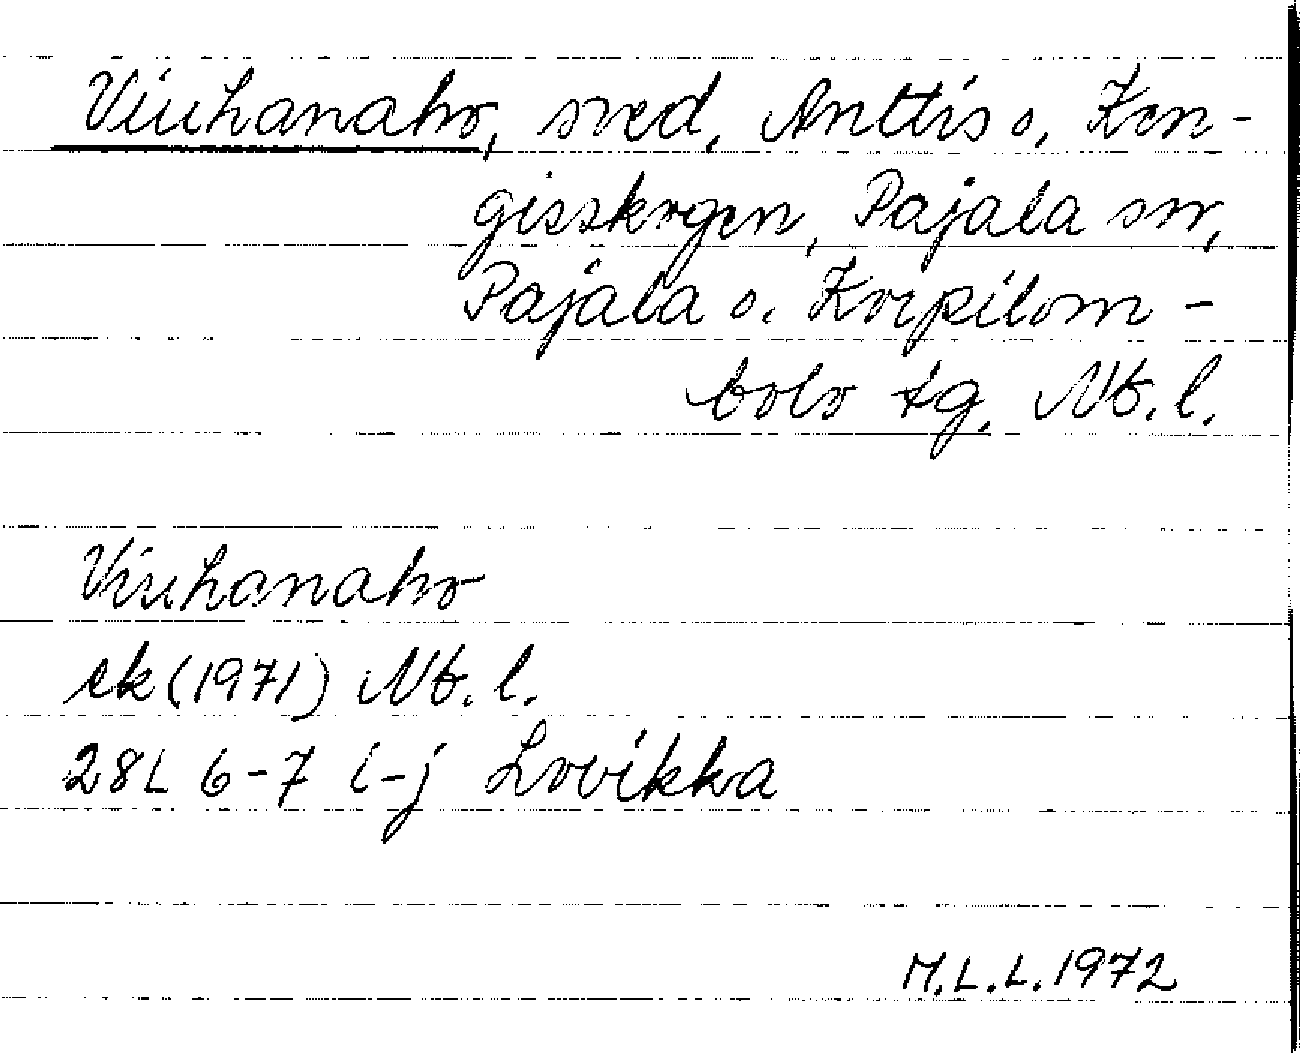 Viuhanaho, sved, Anttis o. Ken-
gisskogen, Pajala sn,
Pajala o. Korpilom-
bolo tg. Nb. l.
Viuhanaho
ek (1971) Nb. l.
28L 6-7 i-j Lovikka
M.L.L. 1972